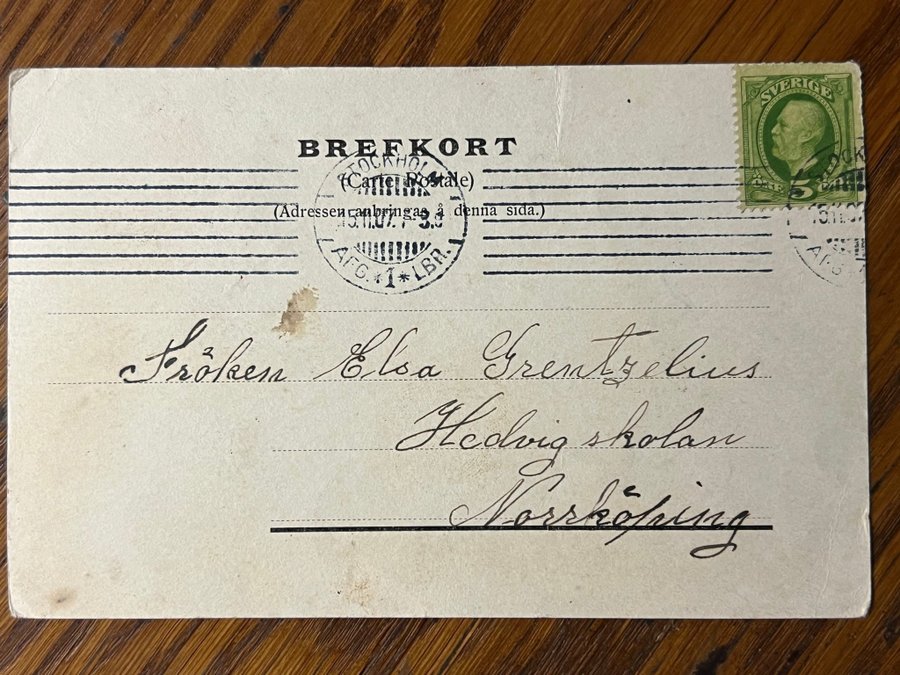 SVERIGE
5
BREFKORT
(Carte Postale)
(Adressen anbringas å denna sida.)
STOCKHOLM
15.11.07.
AFG. *1* LBR.
STOCK
15.11.07
AFG
Fröken Elsa Grentzelius
Hedvig skolan
Norrköping